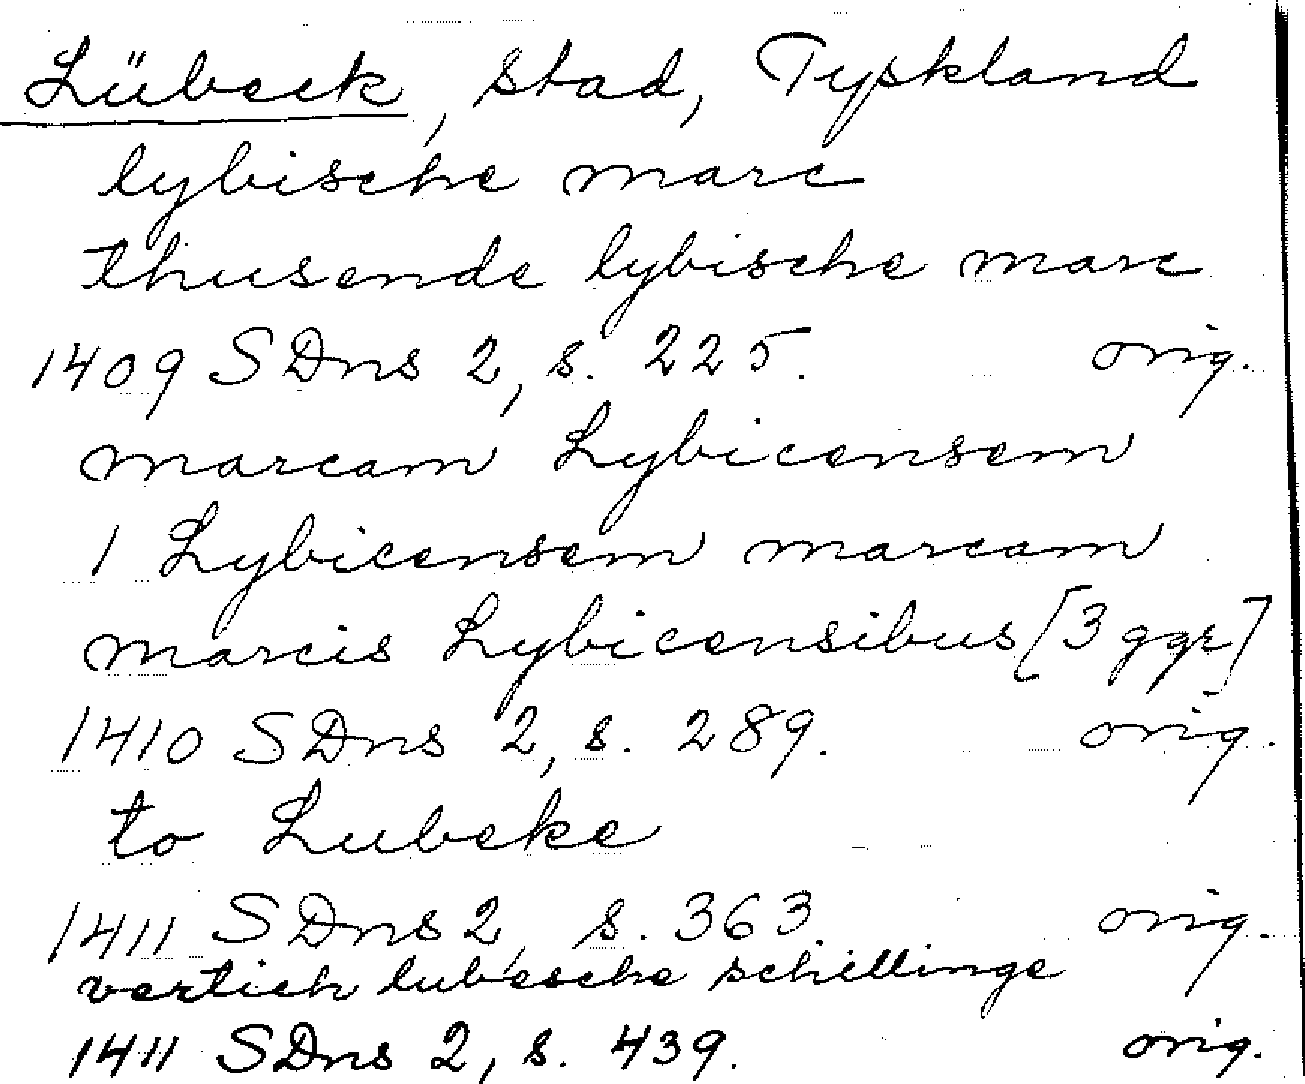 Lübeck, stad, Tyskland
lybische marc
thusende lybische marc
1409 SDns 2, s. 225. orig.
marcam Lybicensem
1 Lybicensem marcam
marcis Lybicensibus [3 ggr]
1410 SDns 2, s. 289. orig.
to Lubeke
1411 SDns 2, s. 363. orig.
vertich lubesche schillinge
1411 SDns 2, s. 439. orig.